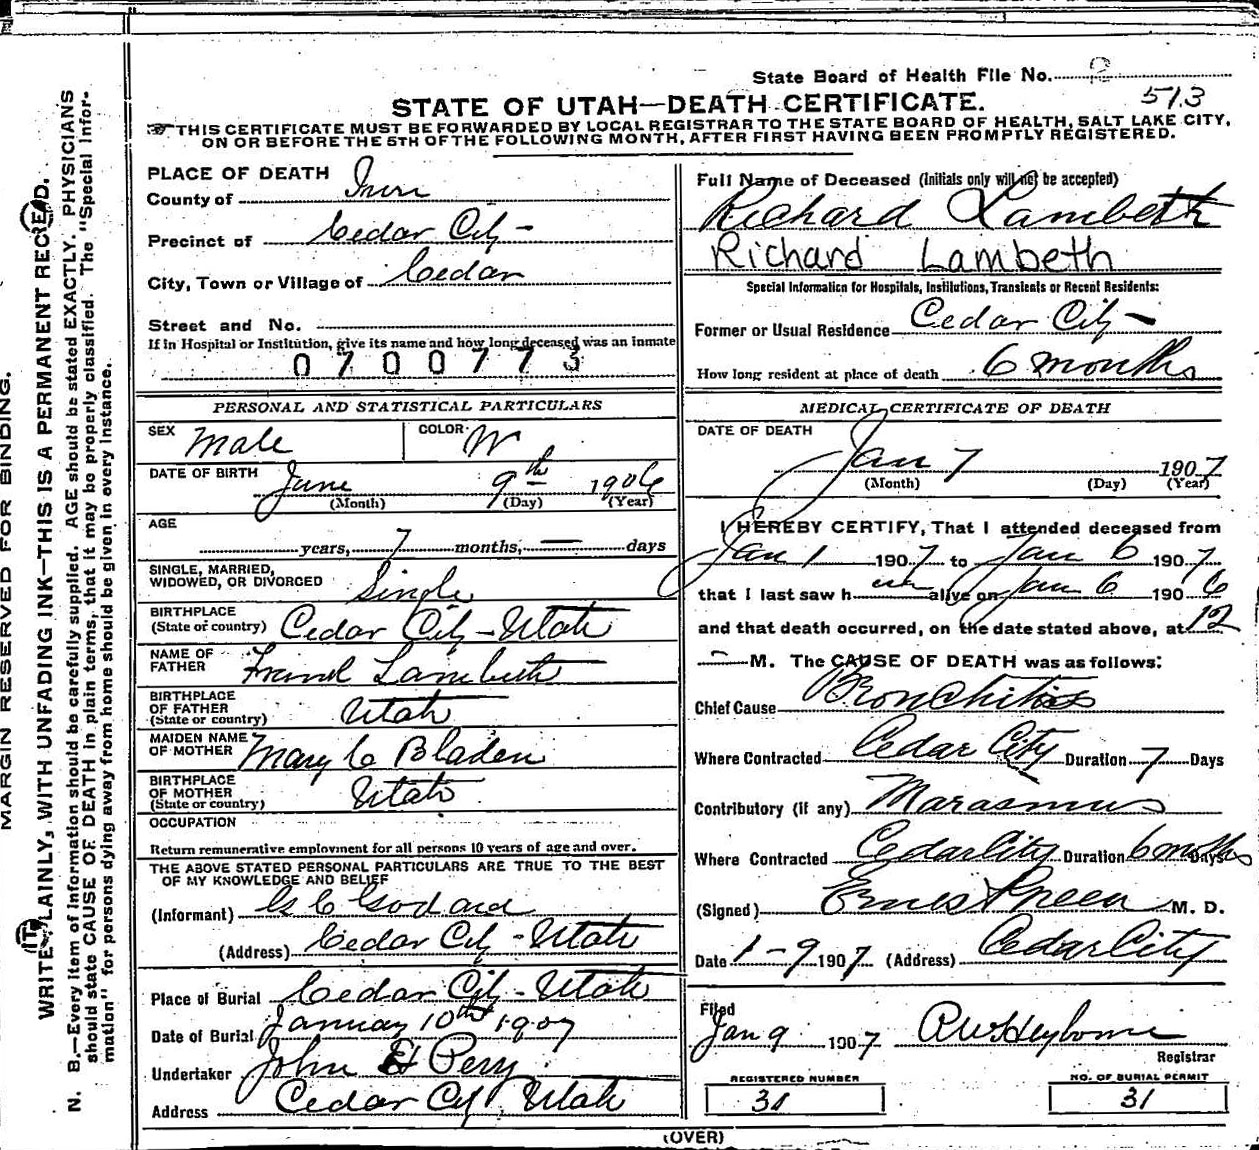 State Board of Health File No. 2
513
STATE OF UTAH—DEATH CERTIFICATE.
THIS CERTIFICATE MUST BE FORWARDED BY LOCAL REGISTRAR TO THE STATE BOARD OF HEALTH, SALT LAKE CITY,
ON OR BEFORE THE 5TH OF THE FOLLOWING MONTH, AFTER FIRST HAVING BEEN PROMPTLY REGISTERED.
MARGIN RESERVED FOR BINDING.
WRITE PLAINLY, WITH UNFADING INK—THIS IS A PERMANENT RECORD.
N. B.—Every item of information should be carefully supplied. AGE should be stated EXACTLY. PHYSICIANS
should state CAUSE OF DEATH in plain terms, that it may be properly classified. The "Special Infor-
mation" for persons dying away from home should be given in every instance.
PLACE OF DEATH
County of Iron
Precinct of Cedar City
City, Town or Village of Cedar
Street and No.
If in Hospital or Institution, give its name and how long deceased was an inmate
0700773
PERSONAL AND STATISTICAL PARTICULARS
SEX Male COLOR W
DATE OF BIRTH June 9th 1906
(Month) (Day) (Year)
AGE
years, 7 months, — days
SINGLE, MARRIED,
WIDOWED, OR DIVORCED Single
BIRTHPLACE
(State or country) Cedar City - Utah
NAME OF
FATHER Frank Lambeth
BIRTHPLACE
OF FATHER
(State or country) Utah
MAIDEN NAME
OF MOTHER Mary C Bladen
BIRTHPLACE
OF MOTHER
(State or country) Utah
OCCUPATION
Return remunerative employment for all persons 10 years of age and over.
THE ABOVE STATED PERSONAL PARTICULARS ARE TRUE TO THE BEST
OF MY KNOWLEDGE AND BELIEF
(Informant) G C Godard
(Address) Cedar City - Utah
Place of Burial Cedar City - Utah
Date of Burial January 10th 1907
Undertaker John H Perry
Address Cedar City Utah
Full Name of Deceased (Initials only will not be accepted)
Richard Lambeth
Richard Lambeth
Special Information for Hospitals, Institutions, Transients or Recent Residents:
Former or Usual Residence Cedar City
How long resident at place of death 6 months
MEDICAL CERTIFICATE OF DEATH
DATE OF DEATH
Jan 7 1907
(Month) (Day) (Year)
I HEREBY CERTIFY, That I attended deceased from
Jan 1 1907 to Jan 6 1907
that I last saw him alive on Jan 6 1906
and that death occurred, on the date stated above, at 12
M. The CAUSE OF DEATH was as follows:
Chief Cause Bronchitis
Where Contracted Cedar City Duration 7 Days
Contributory (if any) Marasmus
Where Contracted Cedar City Duration 6 months Days
(Signed) Green M. D.
Date 1-9 1907 (Address) Cedar City
Filed
Jan 9 1907
Registrar
REGISTERED NUMBER
31
NO. OF BURIAL PERMIT
31
(OVER)